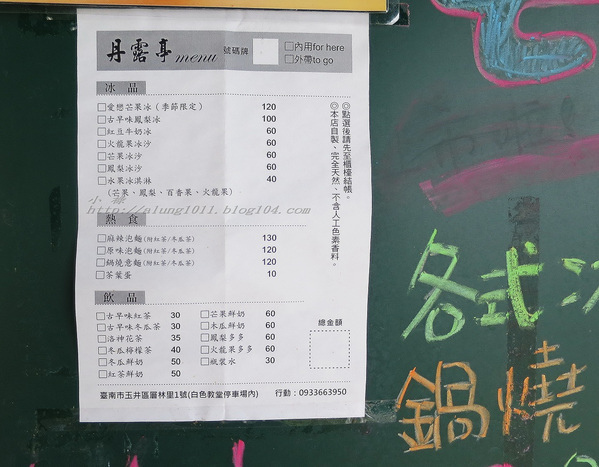 丹露亭menu 號碼牌 □內用for here
□外帶to go
冰 品
□愛戀芒果冰(季節限定) 120
□古早味鳳梨冰 100
□紅豆牛奶冰 60
□火龍果冰沙 60
□芒果冰沙 60
□鳳梨冰沙 60
□水果冰淇淋 40
(芒果、鳳梨、百香果、火龍果)
◎點選後請先至櫃檯結帳。
◎本店自製、完全天然、不含人工色素香料。
http://alung1011.blog104.com/
熱 食
□麻辣泡麵(附紅茶/冬瓜茶) 130
□原味泡麵(附紅茶/冬瓜茶) 120
□鍋燒意麵(附紅茶/冬瓜茶) 120
□茶葉蛋 10
飲 品
□古早味紅茶 30 □芒果鮮奶 60
□古早味冬瓜茶 30 □木瓜鮮奶 60
□洛神花茶 35 □鳳梨多多 60
□冬瓜檸檬茶 40 □火龍果多多 60
□冬瓜鮮奶 50 □瓶裝水 30
□紅茶鮮奶 50
總金額
臺南市玉井區層林里1號(白色教堂停車場內) 行動:0933663950
各式冰
鍋燒